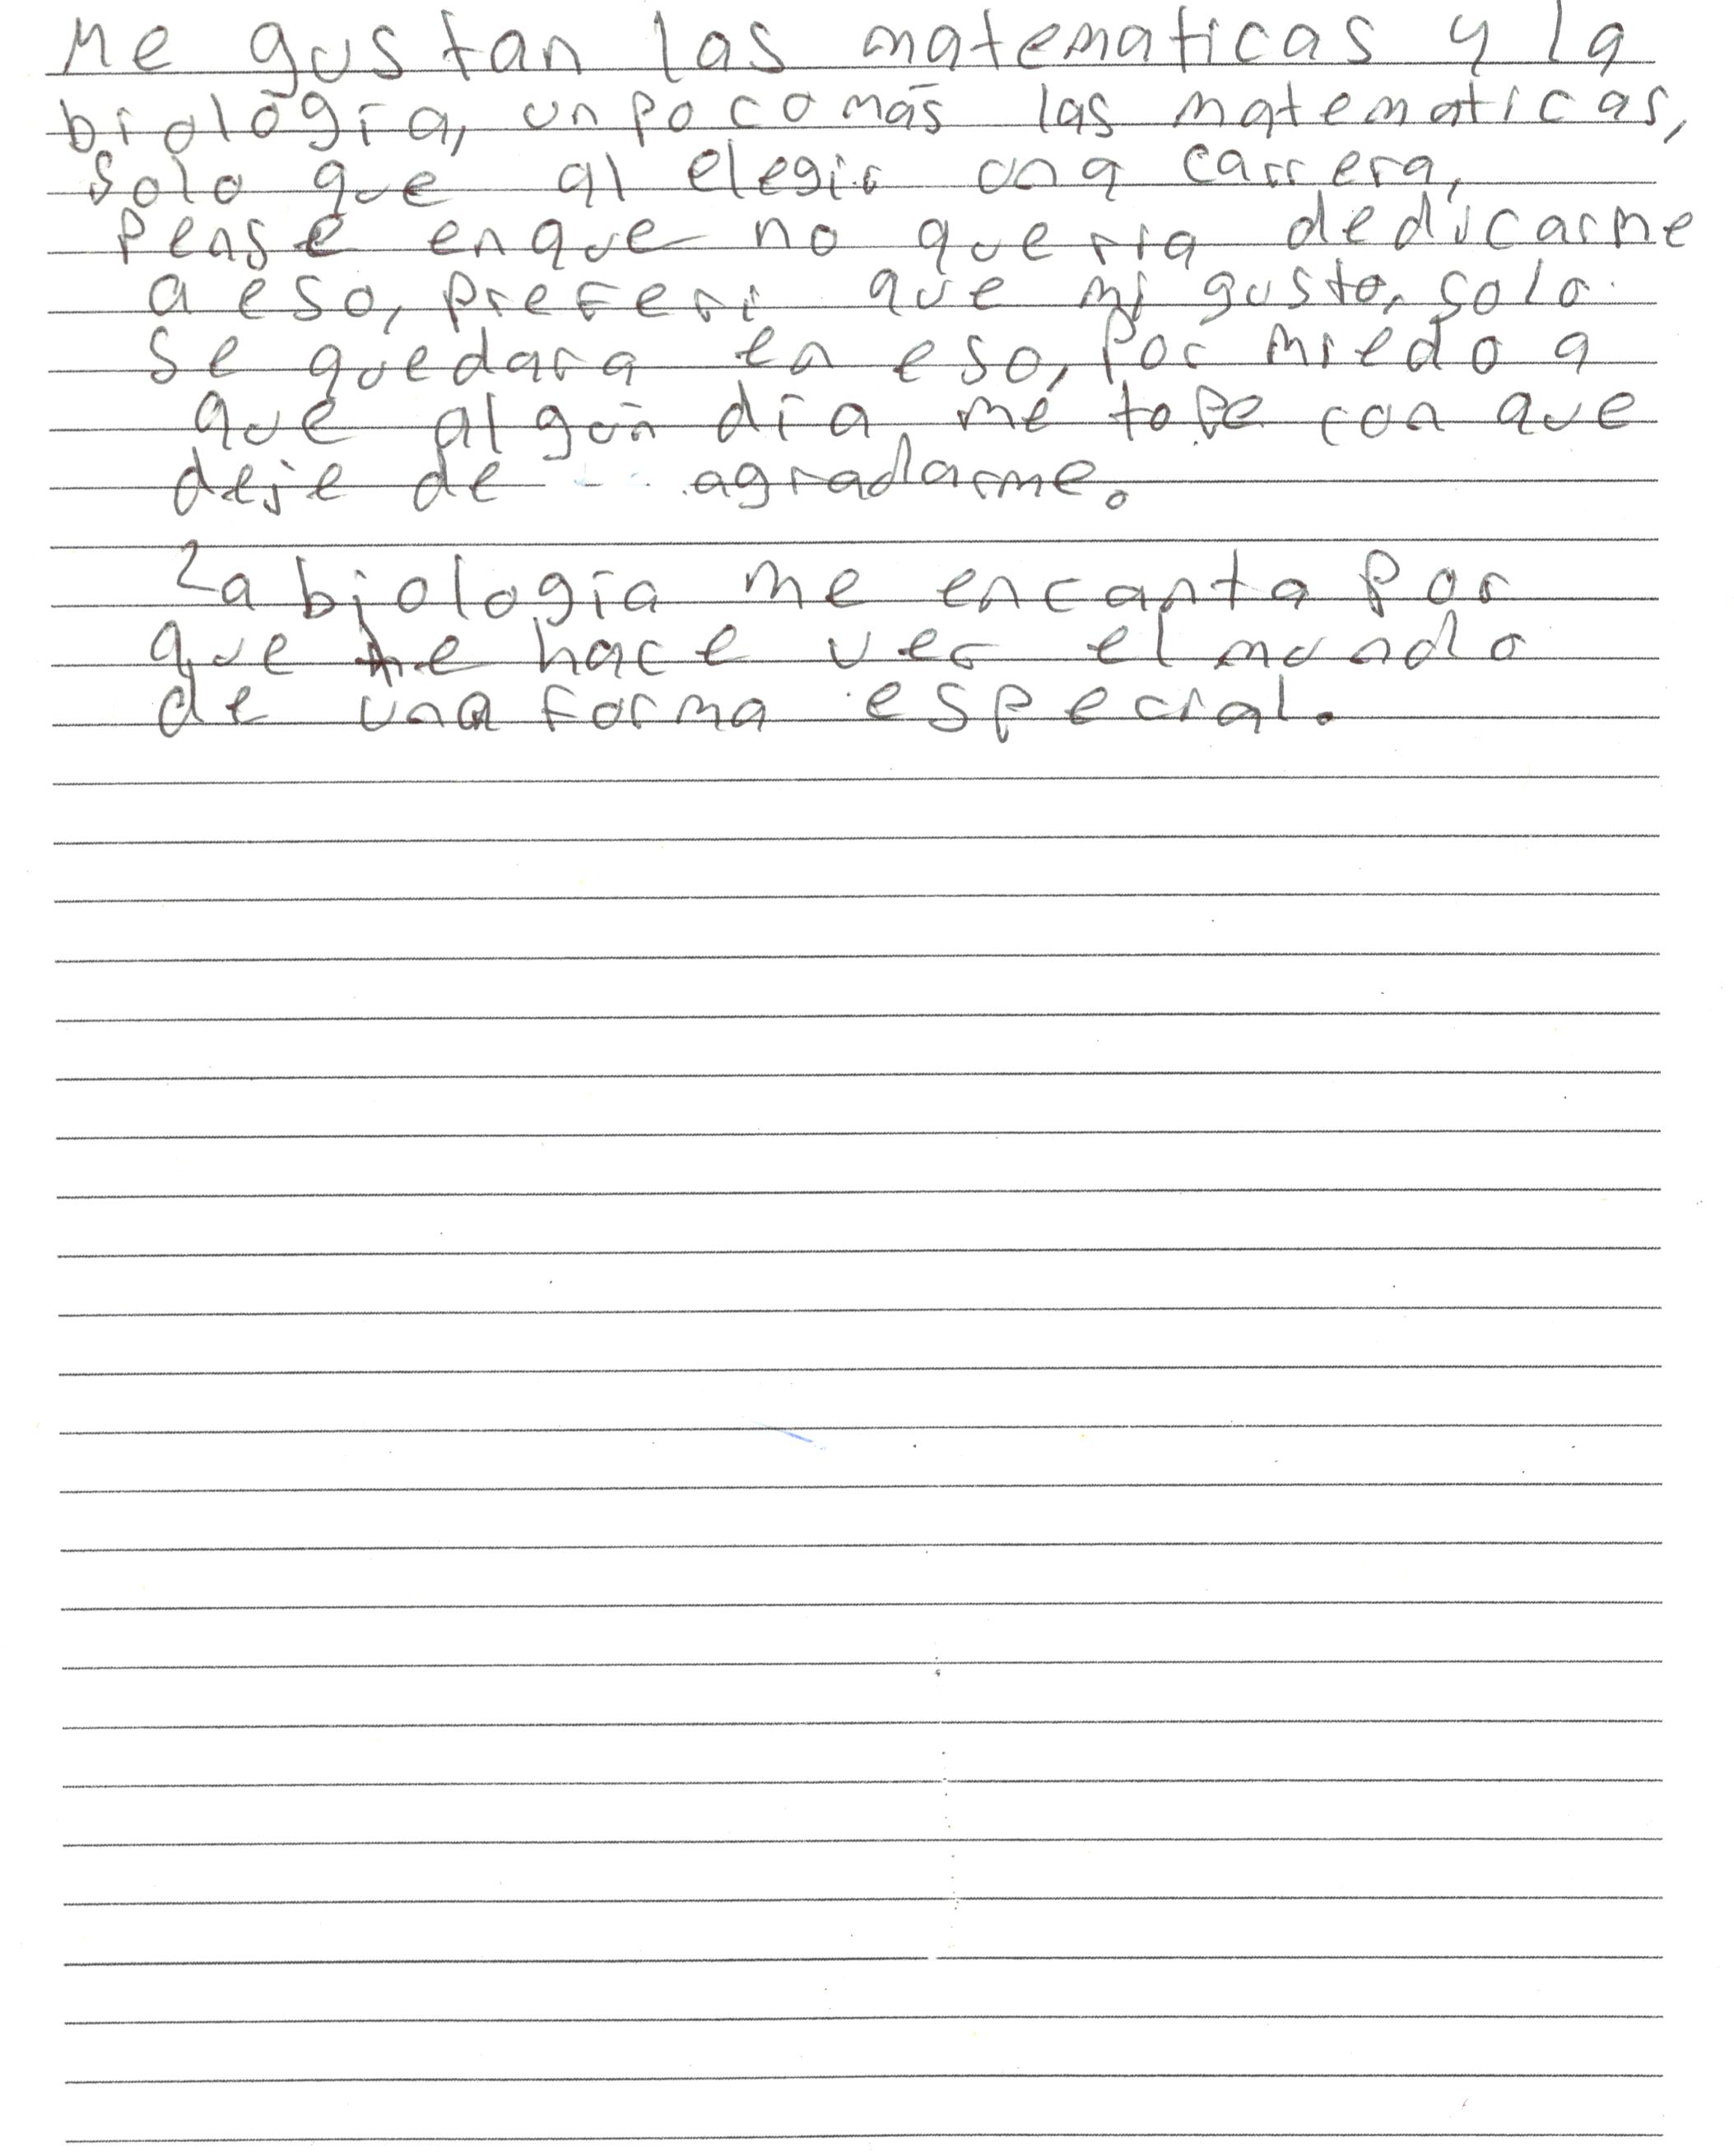 Me gustan las matematicas y la
biología, un poco más las matematicas,
solo que al elegir una carrera,
pense en que no queria dedicarme
a eso, preferi que mi gusto, solo
se quedara en eso, por miedo a
que algún día me tope con que
deje de agradarme.
La biología me encanta por
que me hace ver el mundo
de una forma especial.